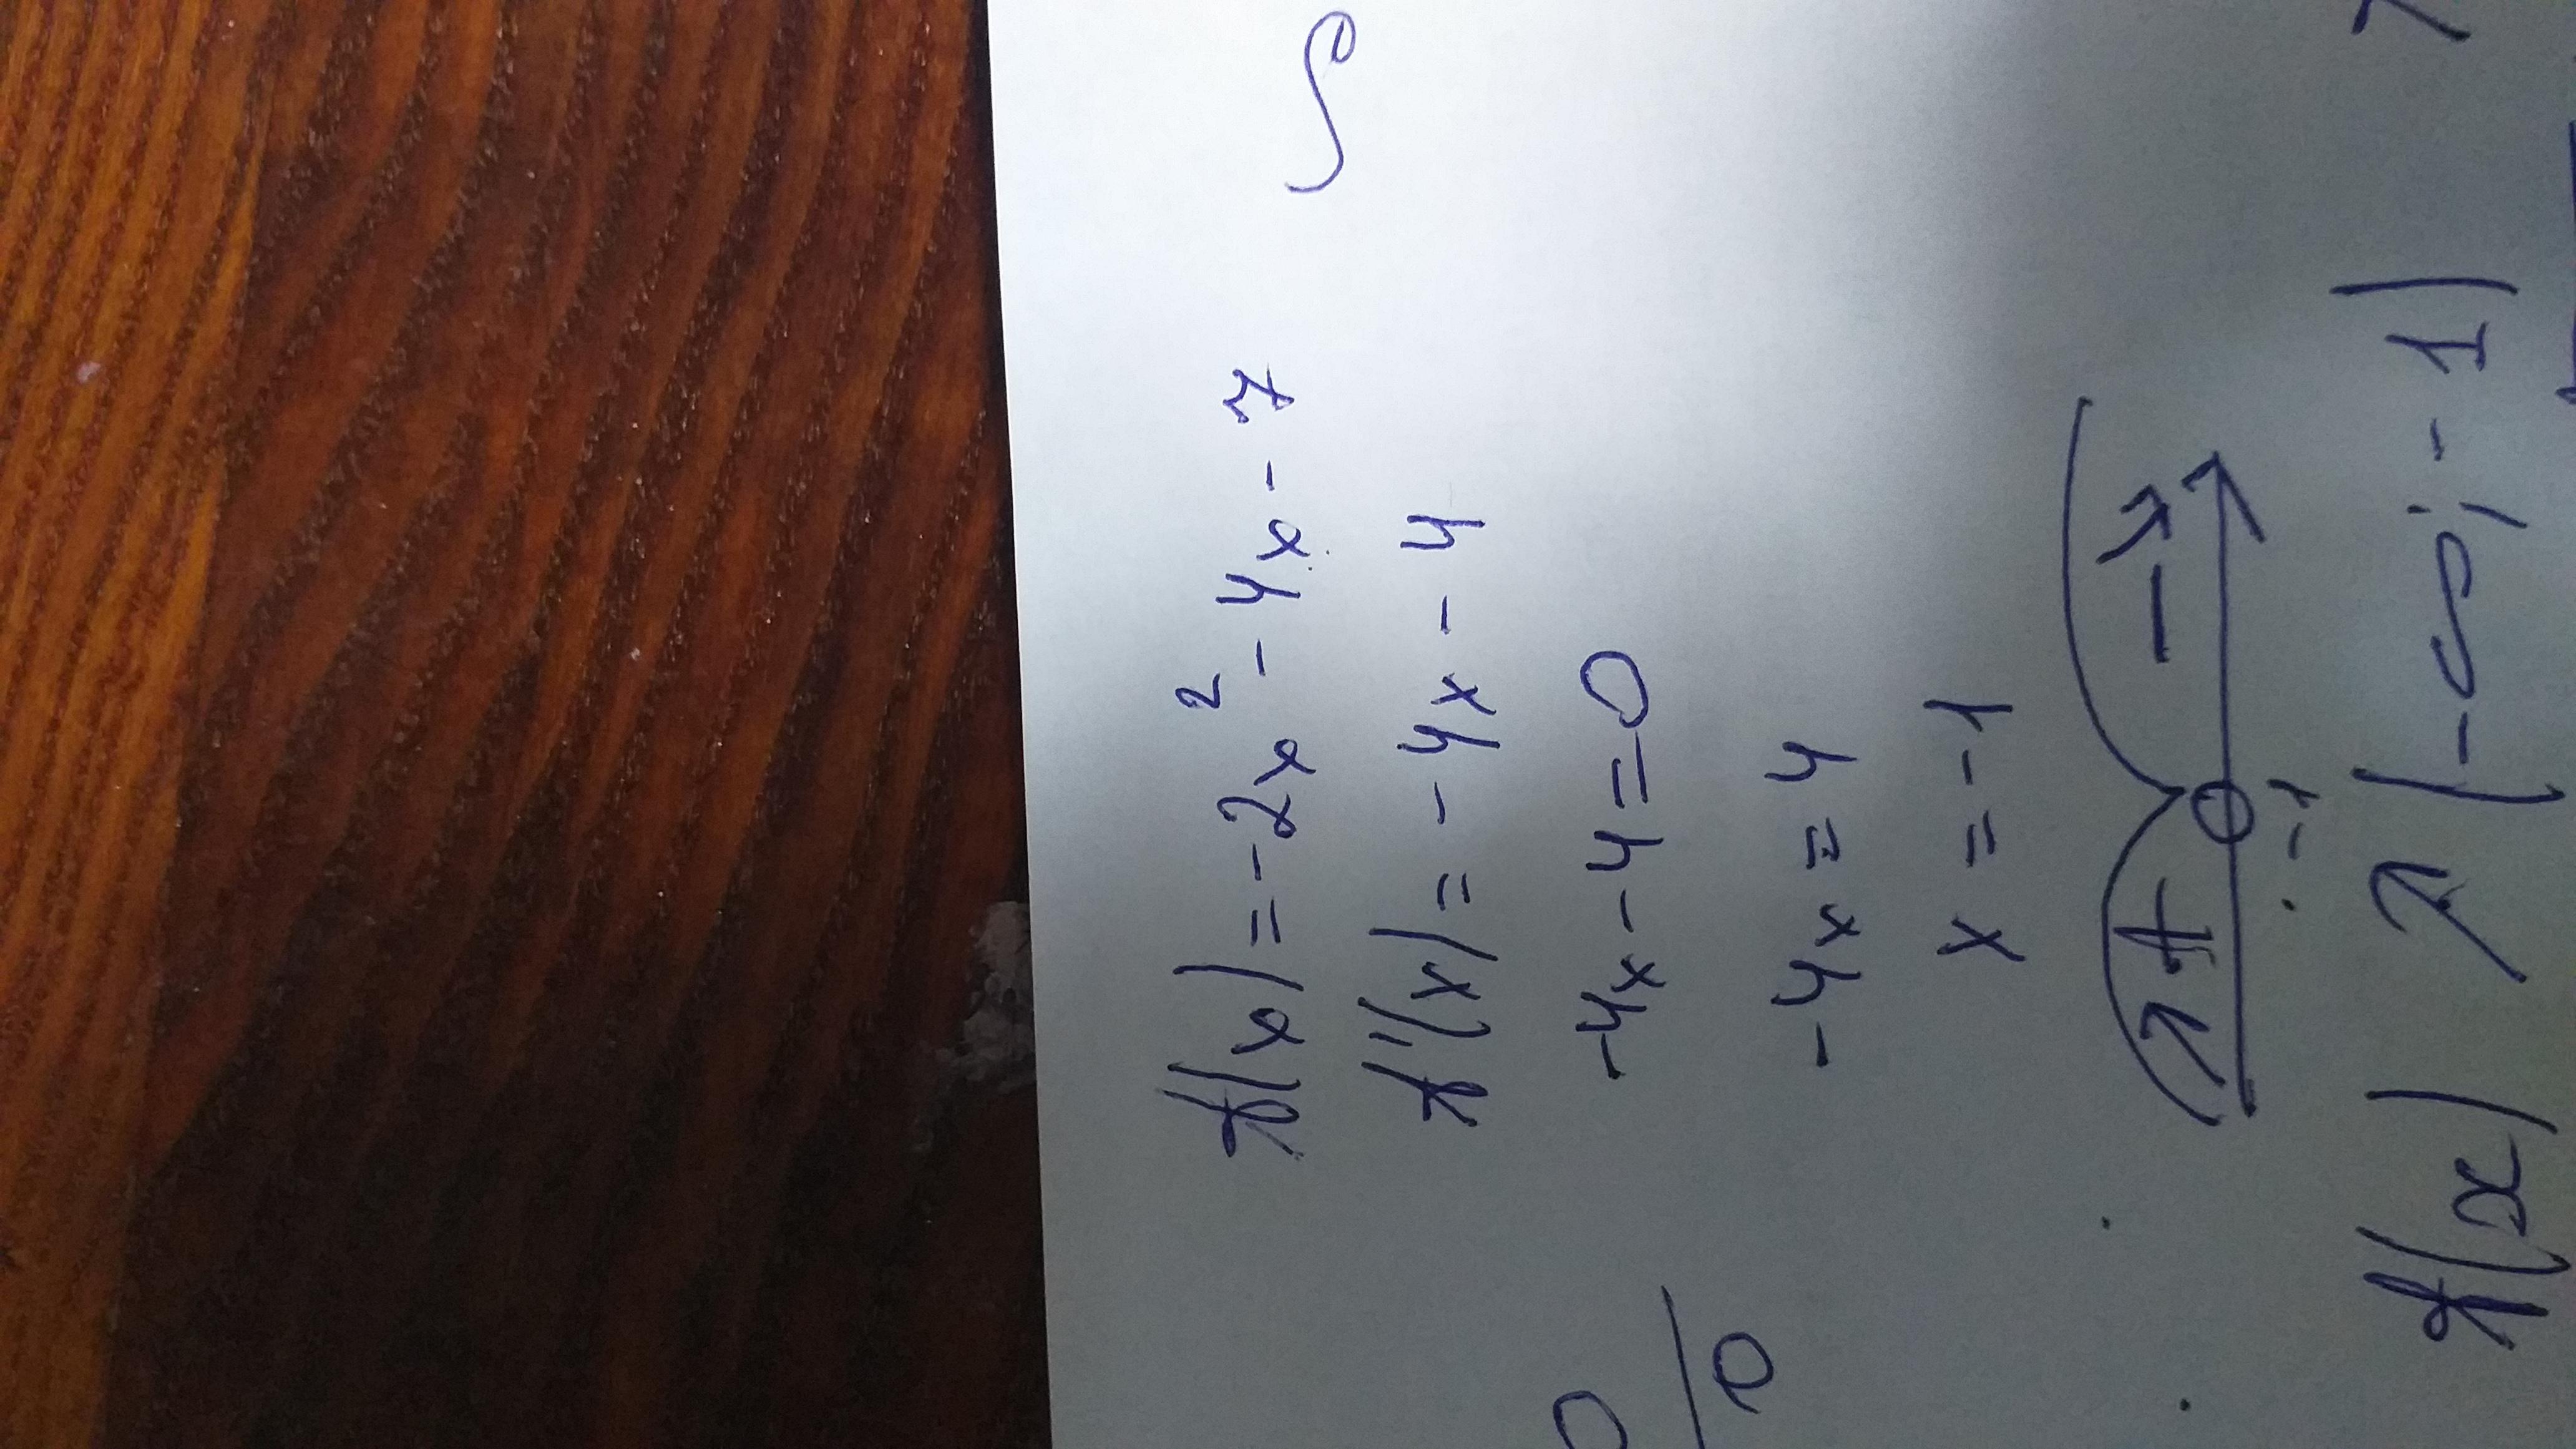 f(x) = -2x² - 4x - 7
f'(x) = -4x - 4
-4x - 4 = 0
-4x = 4
x = -1
↗ + - ↘
-1
f(x) ↗ (-∞; -1)